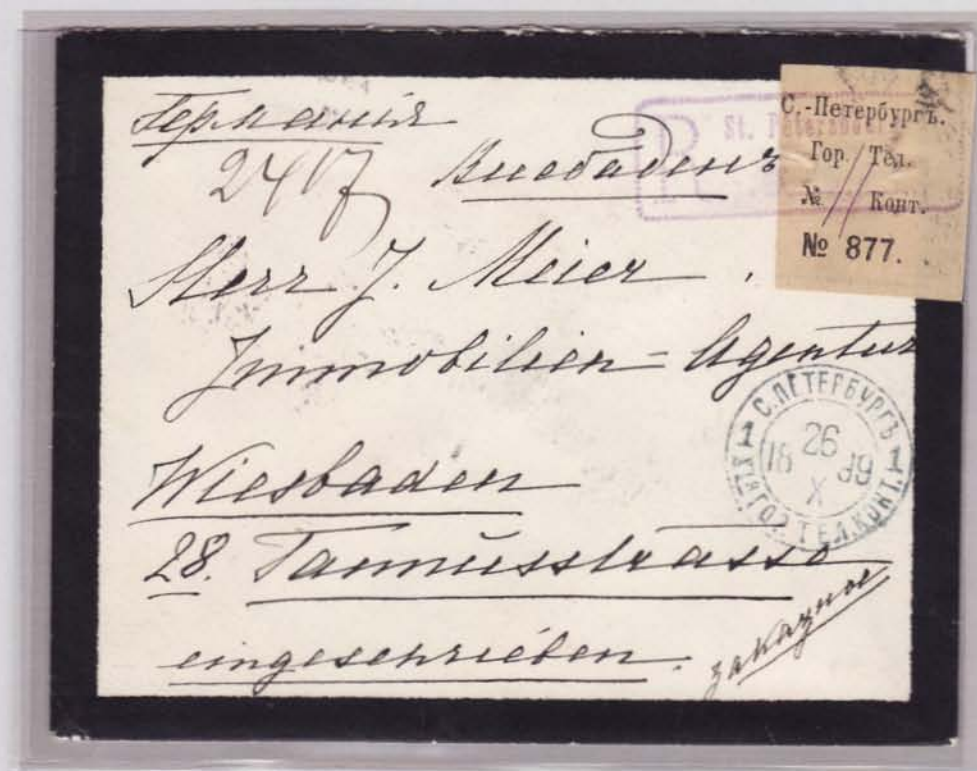 Германія
2417 Висбаденъ
R St. Petersbourg
С.-Петербургъ.
Гор. Тел.
№ Конт.
№ 877.
Herr J. Meier.
Immobilien=Agentur
Wiesbaden
28. Taunusstrasse
eingeschrieben.
заказное
С.ПЕТЕРБУРГЪ
1 26 1
18 99
X
ГОР. ТЕЛ. КОНТ.